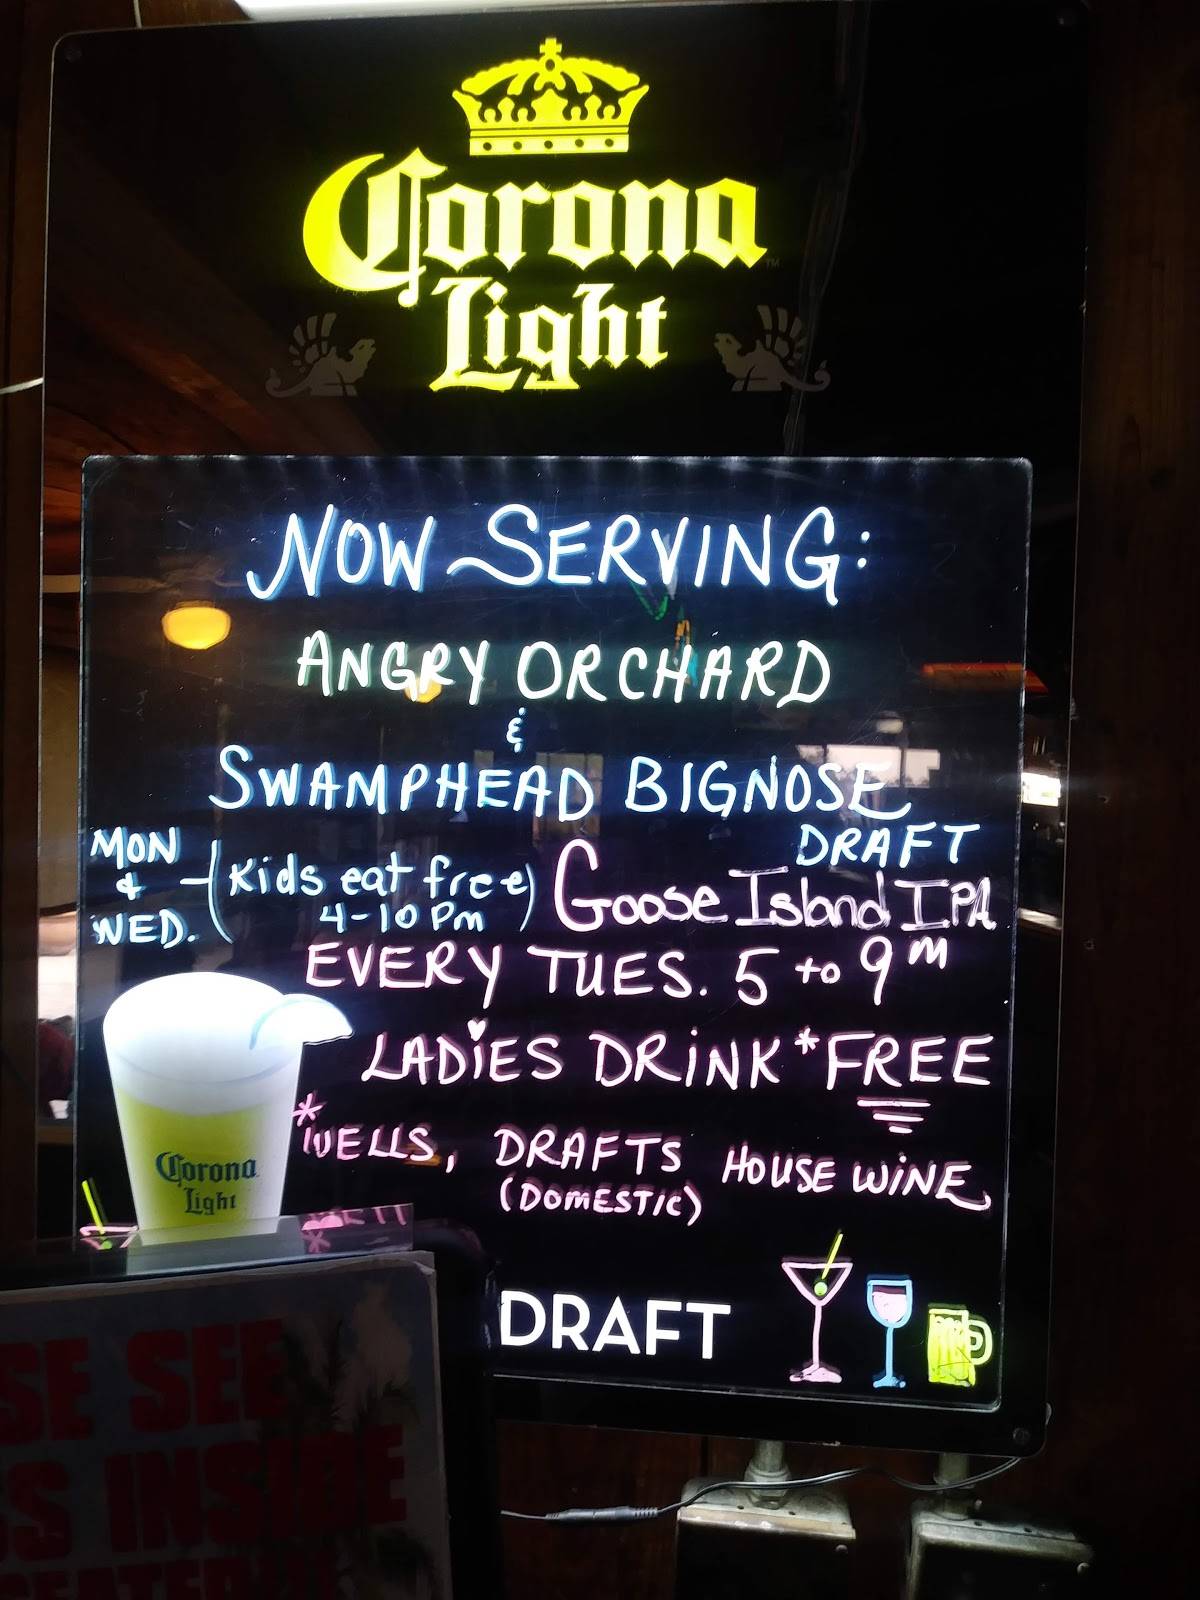 Corona
Light
NOW SERVING:
ANGRY ORCHARD
&
SWAMPHEAD BIGNOSE
DRAFT
MON
&
WED.
(Kids eat free)
4-10 Pm
Goose Island IPA
EVERY TUES. 5 to 9 PM
LADIES DRINK *FREE
*WELLS, DRAFTS HOUSE WINE
(DOMESTIC)
Corona
Light
DRAFT
SEE
INSIDE